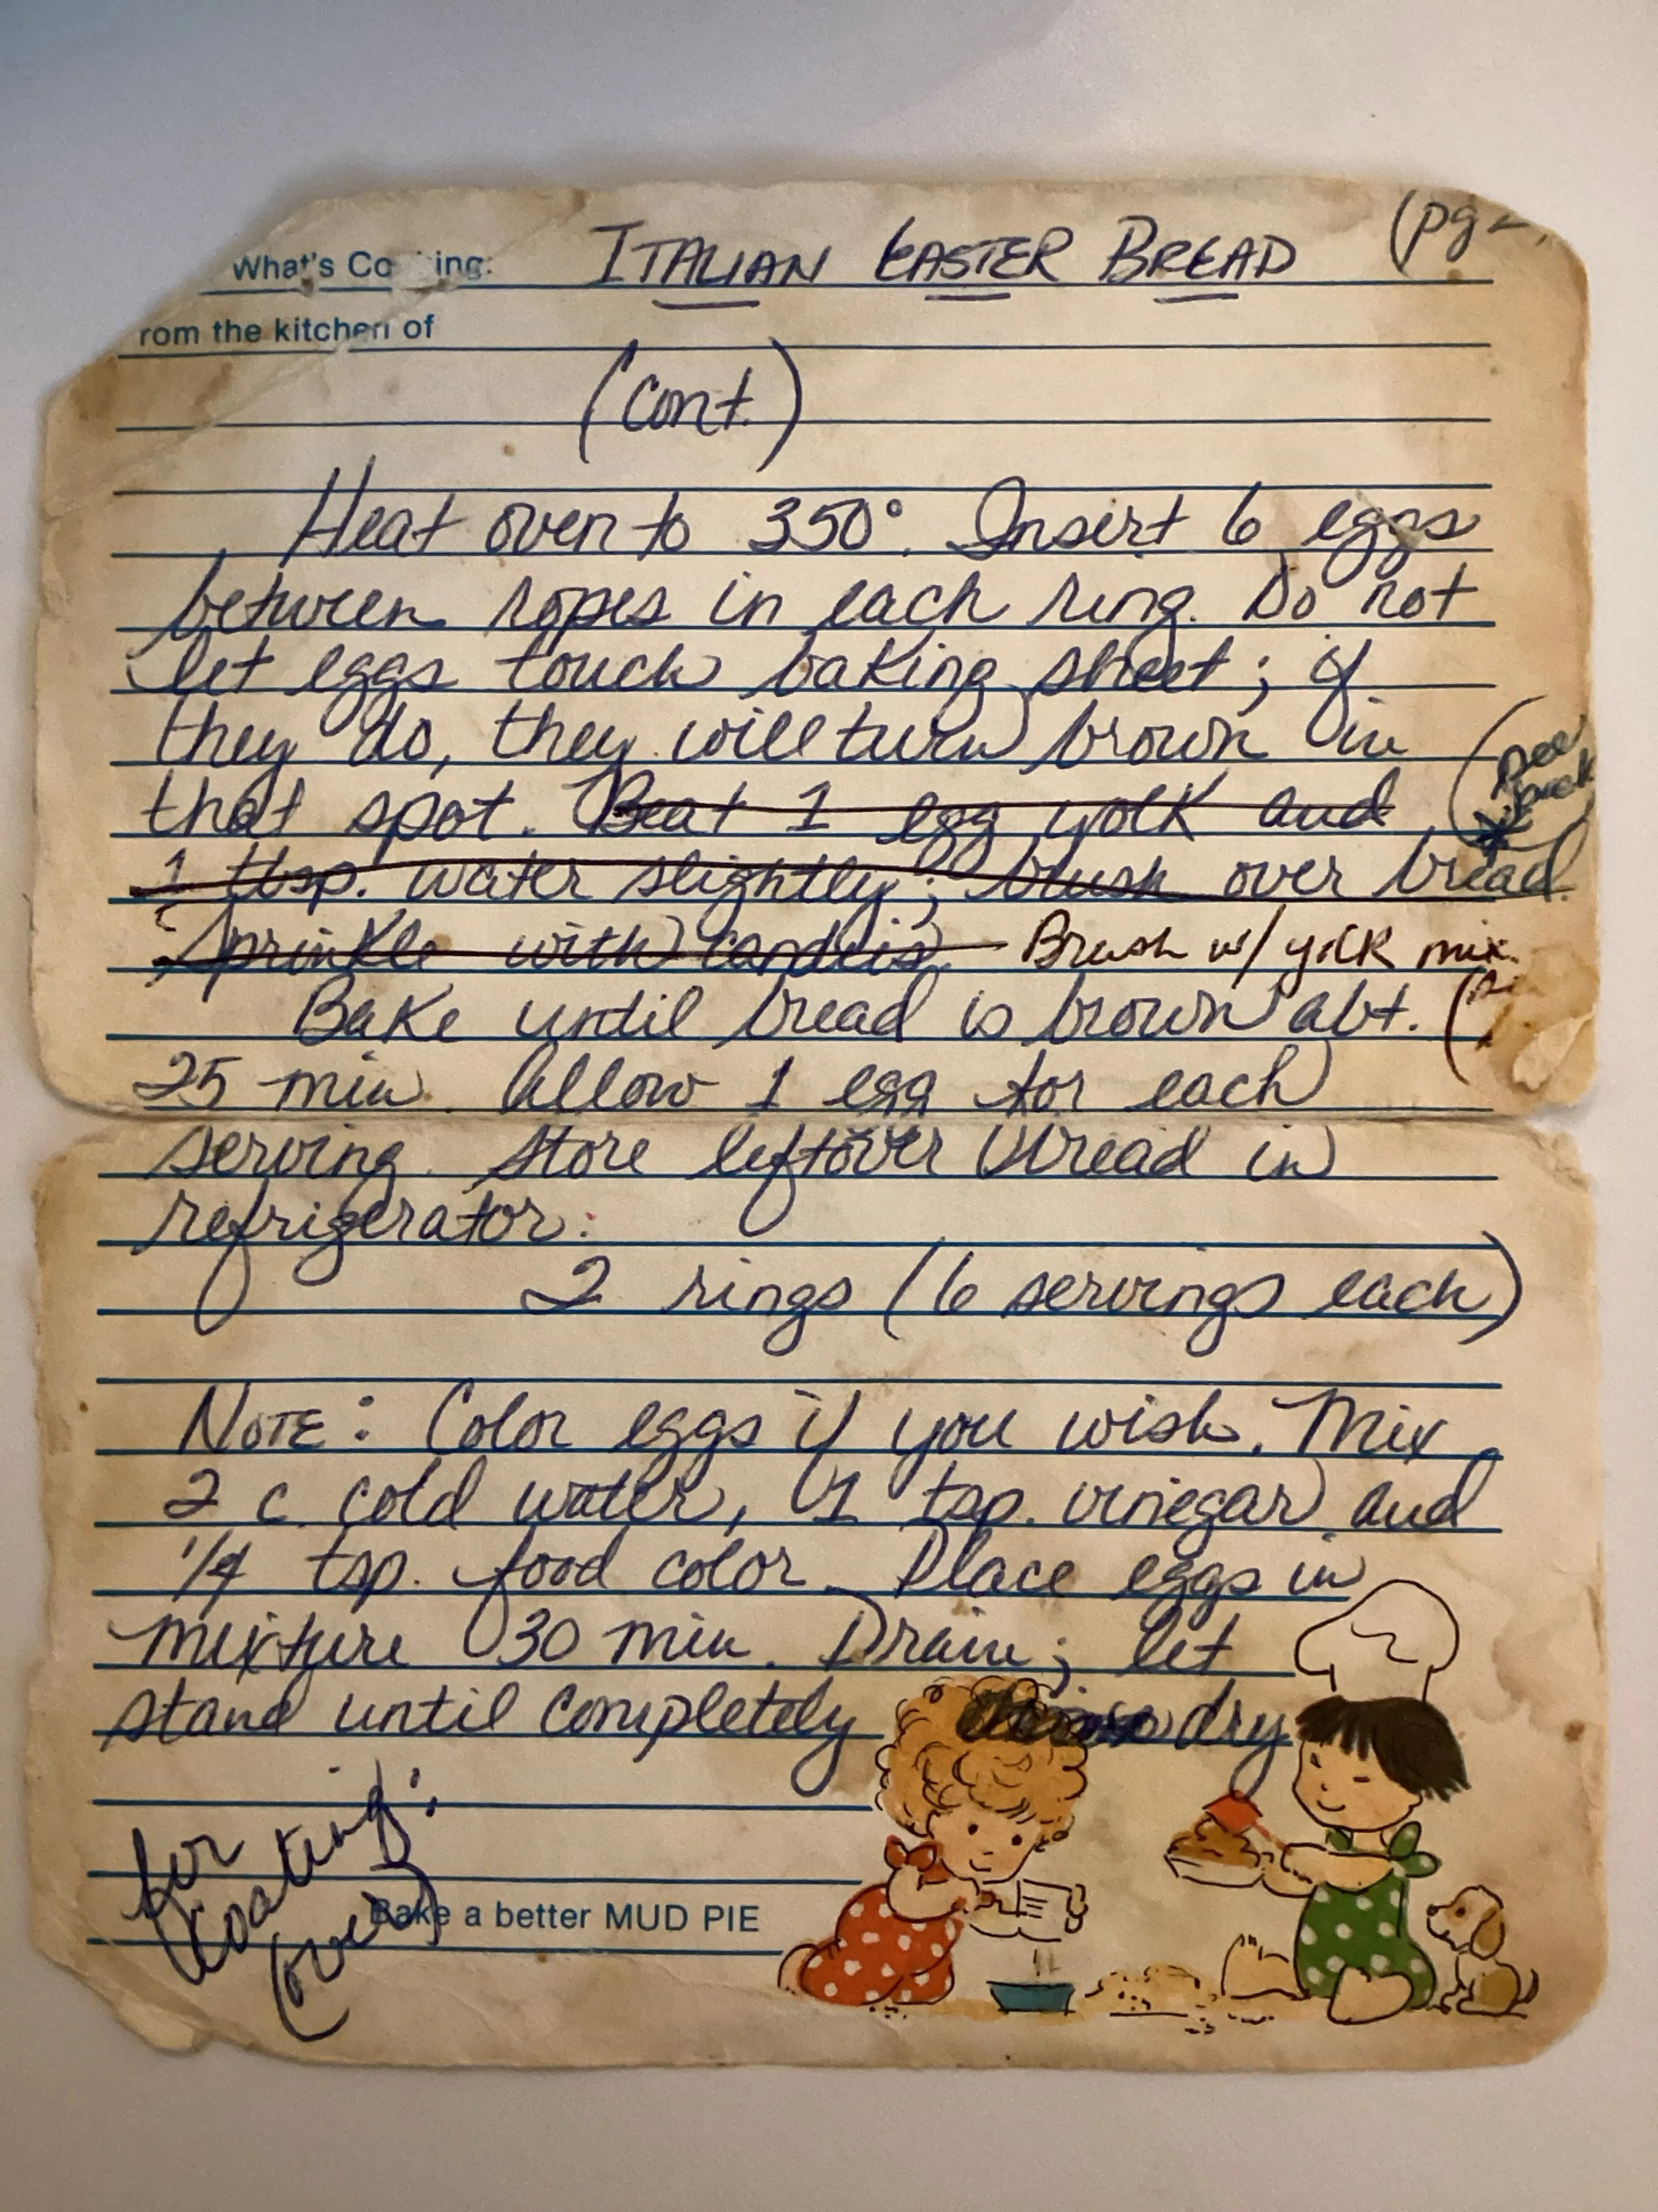 What's Co ing: ITALIAN EASTER BREAD (pg
rom the kitchen of
(Cont.)
Heat oven to 350°. Insert 6 eggs
between ropes in each ring. Do not
let eggs touch baking sheet; if
they do, they will turn brown in
that spot. Beat 1 egg yolk and (see back *
1 tbsp. water slightly; brush over bread.
Sprinkle with candies. Brush w/ yolk mix.
Bake until bread is brown abt. (
25 min. Allow 1 egg for each
serving. Store leftover bread in
refrigerator.
2 rings (6 servings each)
NOTE: Color eggs if you wish. Mix
2 c. cold water, 1 tsp. vinegar and
1/4 tsp. food color. Place eggs in
mixture 30 min. Drain; let
stand until completely dry
for
coating:
(over)
Bake a better MUD PIE